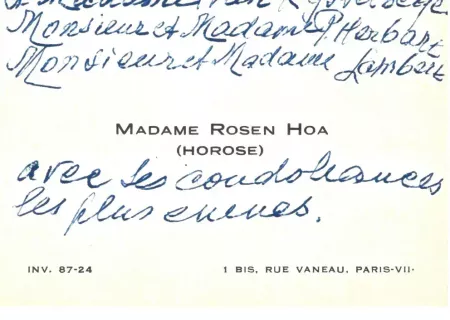 Monsieur et Madame P. Herbart
Monsieur et Madame Lambert
MADAME ROSEN HOA
(HOROSE)
avec ses condoléances
les plus émues.
INV. 87-24
1 BIS, RUE VANEAU, PARIS-VII·